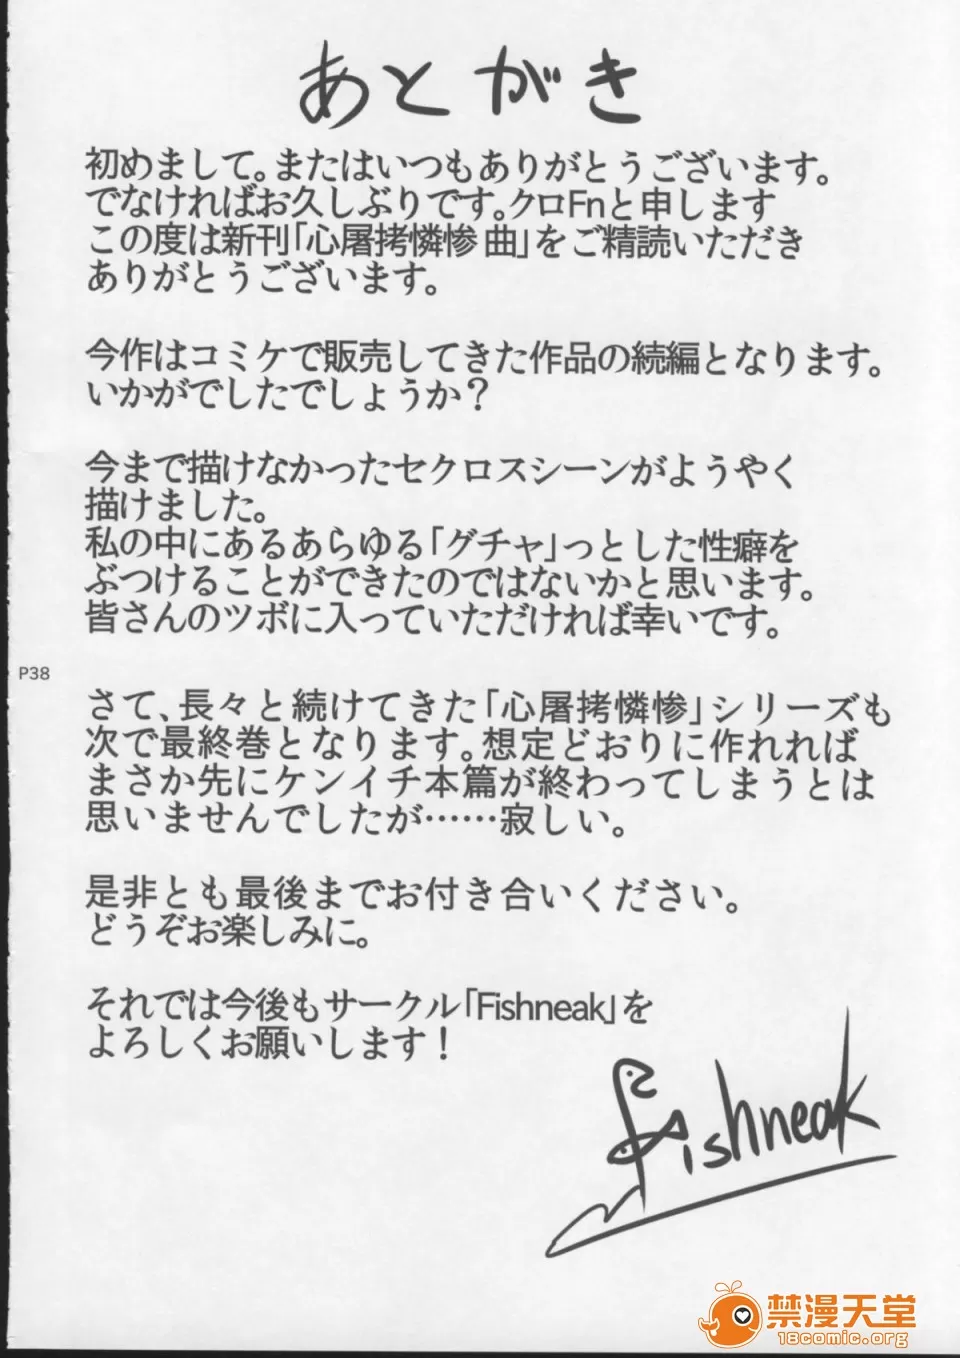 あとがき
初めまして。またはいつもありがとうございます。
でなければお久しぶりです。クロFnと申します
この度は新刊「心屠拷憐惨 曲」をご精読いただき
ありがとうございます。
今作はコミケで販売してきた作品の続編となります。
いかがでしたでしょうか？
今まで描けなかったセクロスシーンがようやく
描けました。
私の中にあるあらゆる「グチャ」っとした性癖を
ぶつけることができたのではないかと思います。
皆さんのツボに入っていただければ幸いです。
P38
さて、長々と続けてきた「心屠拷憐惨」シリーズも
次で最終巻となります。想定どおりに作れれば
まさか先にケンイチ本篇が終わってしまうとは
思いませんでしたが……寂しい。
是非とも最後までお付き合いください。
どうぞお楽しみに。
それでは今後もサークル「Fishneak」を
よろしくお願いします！
Fishneak
禁漫天堂
18comic.org